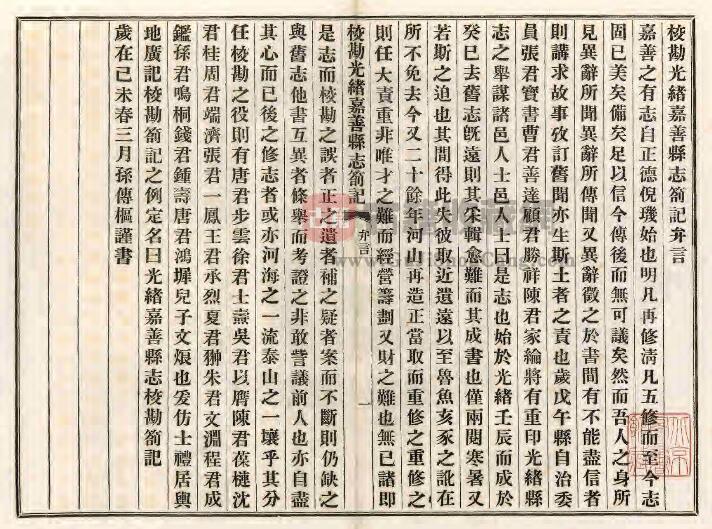 校勘光緒嘉善縣志劄記弁言
嘉善之有志自正德倪璣始也明凡再修清凡五修而至今志
固已美矣備矣足以信今傳後而無可議矣然而吾人之身所
見異辭所聞異辭所傳聞又異辭徵之於書間有不能盡信者
則講求故事攷訂舊聞亦生斯土者之責也歲戊午縣自治委
員張君寶書曹君善達顧君勝祥陳君家綸將有重印光緒縣
志之舉謀諸邑人士邑人士曰是志也始於光緒壬辰而成於
癸巳去舊志旣遠則其采輯愈難而其成書也僅兩閱寒暑又
若斯之迫也其間得此失彼取近遺遠以至魯魚亥豕之訛在
所不免去今又二十餘年河山再造正當取而重修之重修之
則任大責重非唯才之難而經營籌劃又財之難也無已諸即
校勘光緒嘉善縣志劄記 弁言 一
是志而校勘之誤者正之遺者補之疑者案而不斷則仍缺之
與舊志他書互異者條舉而考證之非敢訾議前人也亦自盡
其心而已後之修志者或亦河海之一流泰山之一壤乎其分
任校勘之役則有唐君步雲徐君士燾吳君以膺陳君葆槤沈
君桂周君端濟張君一鳳王君承烈夏君獅朱君文淵程君成
鑑孫君鳴桐錢君鍾壽唐君鴻墀兒子文烺也爰仿士禮居輿
地廣記校勘劄記之例定名曰光緒嘉善縣志校勘劄記
歲在己未春三月孫傳樞謹書